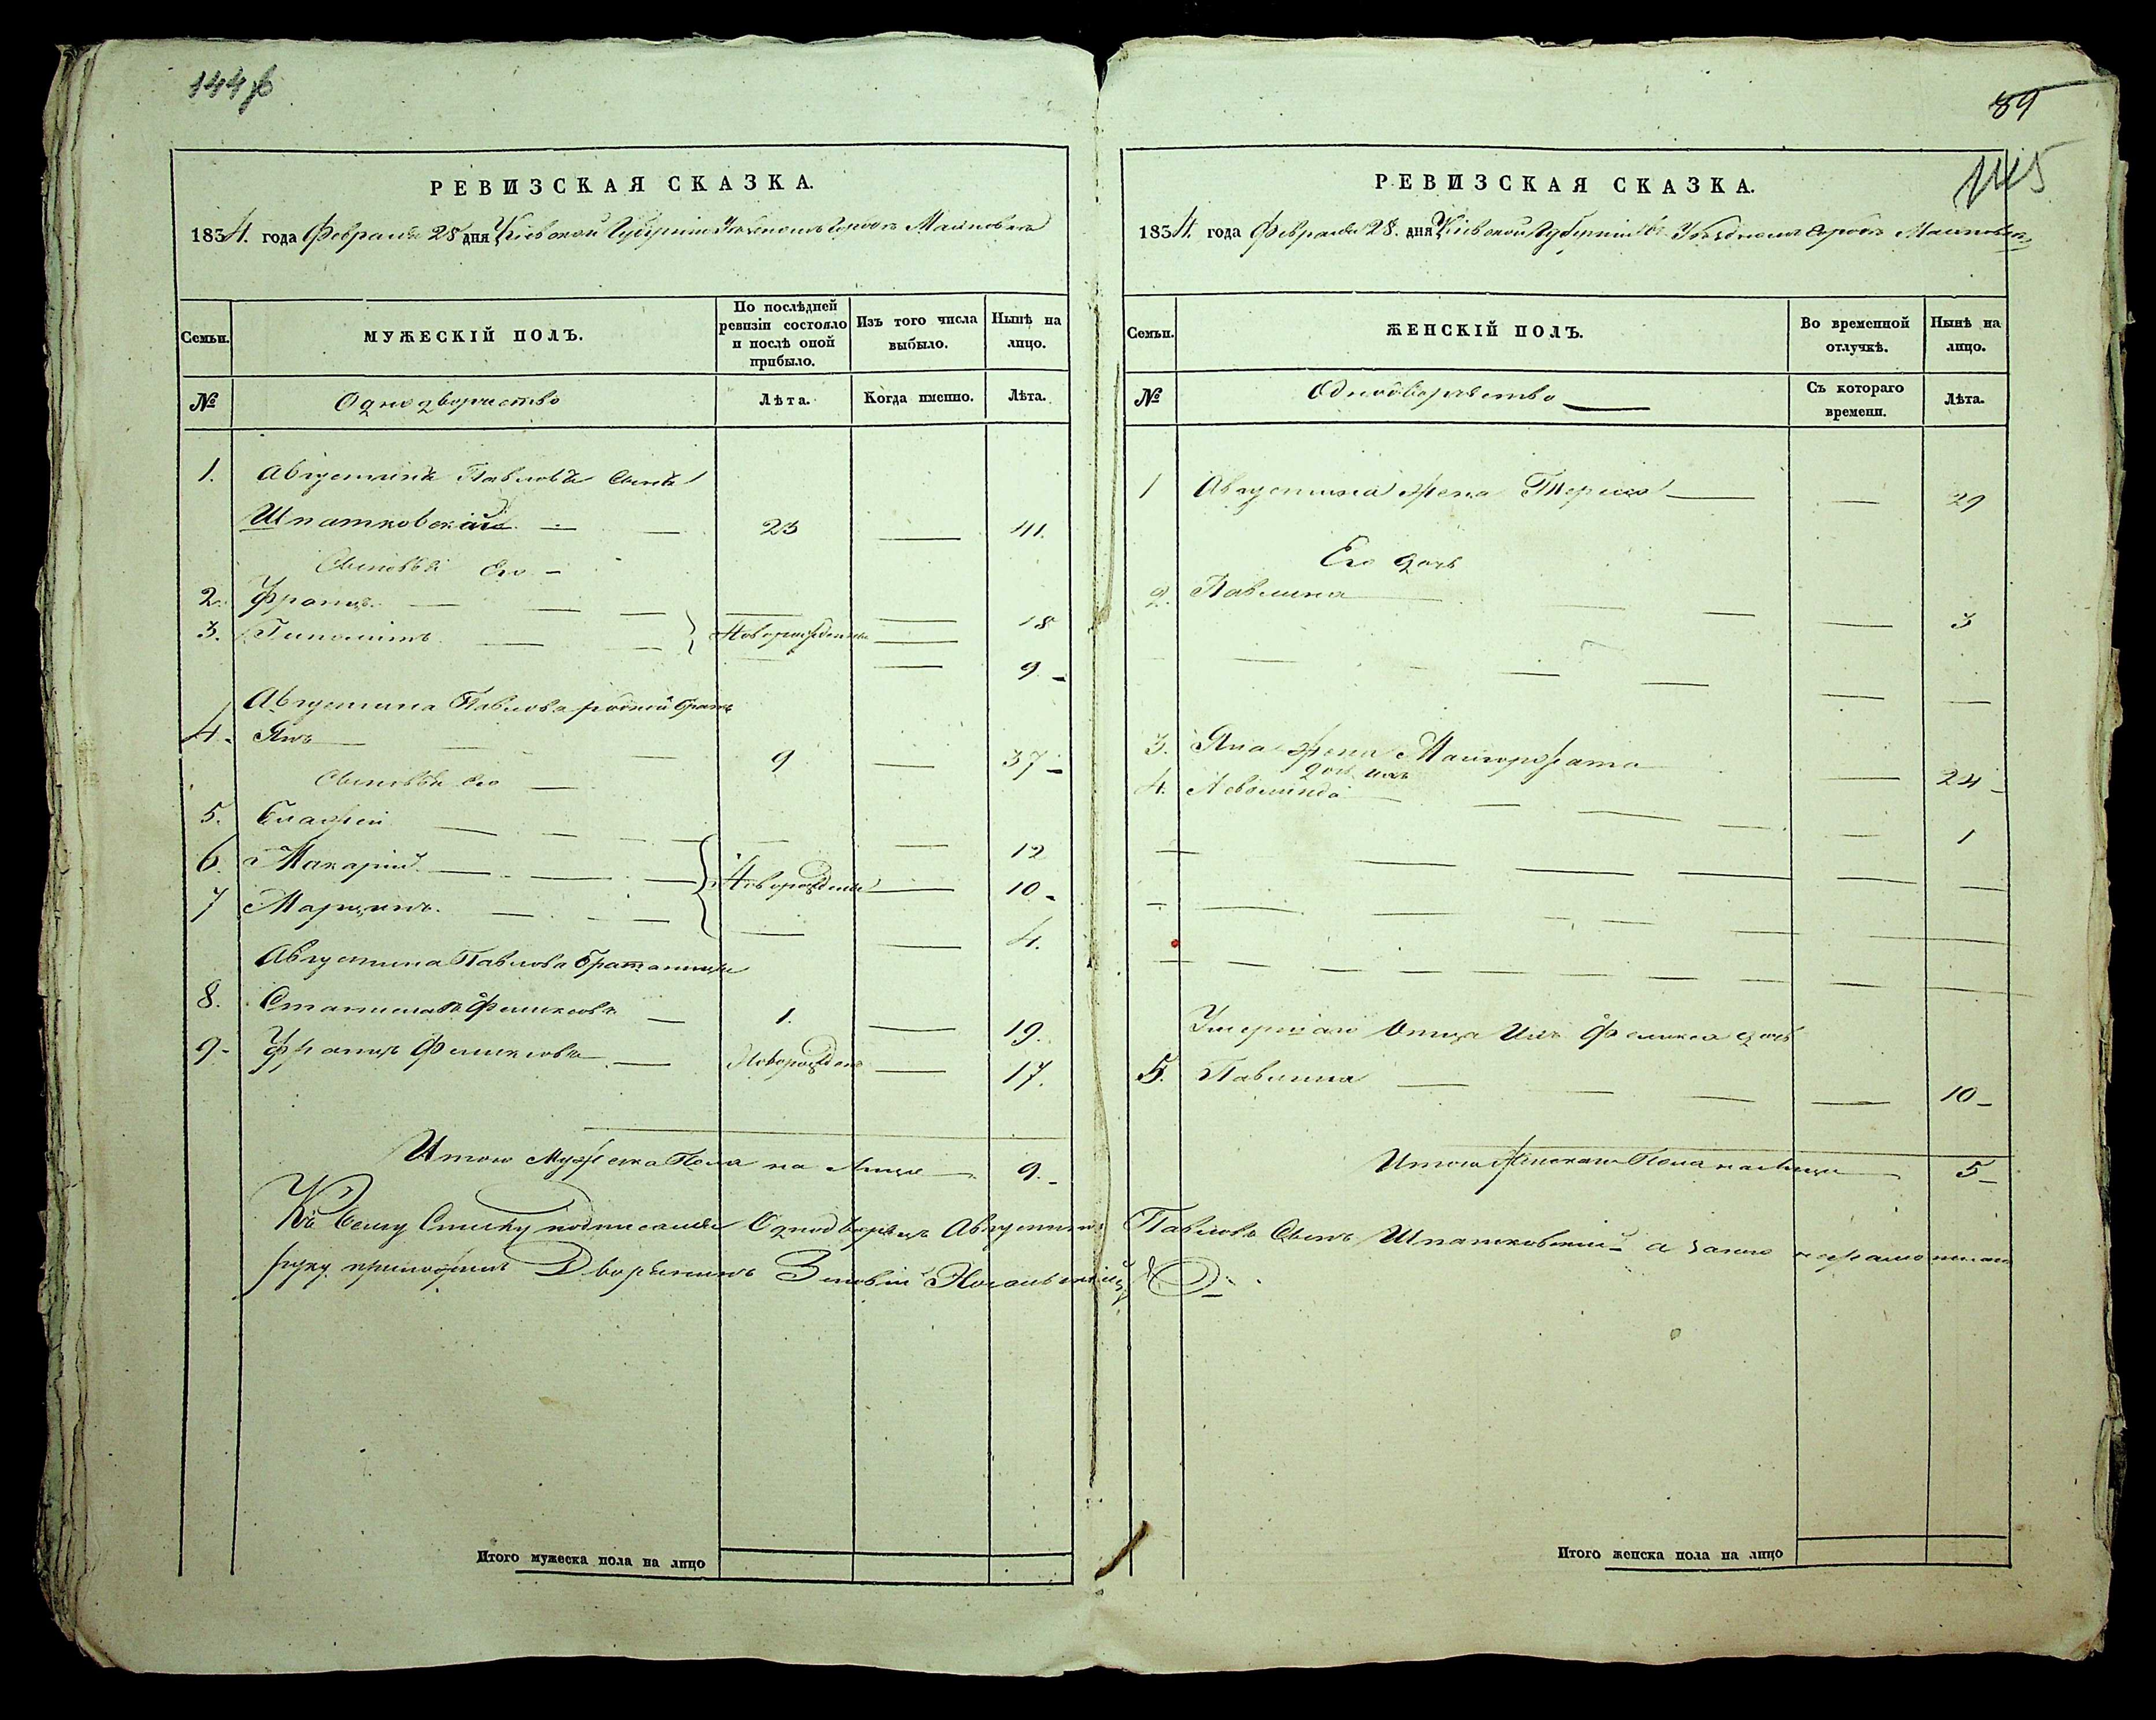 144
РЕВИЗСКАЯ СКАЗКА.
1834. года Февраля 28 дня Кіевской Губерніи городъ Махновка
Семьи.
МУЖЕСКІЙ ПОЛЪ.
По послѣдней ревизіи состояло и послѣ оной прибыло.
Изъ того числа выбыло.
Нынѣ на лицо.
№
Однодворчество
Лѣта.
Когда именно.
Лѣта.
1. Августинъ Павловъ Сынъ
Шпатковскій 23 41.
Сыновья Его
2. Францъ 18
3. Гиполитъ Новорожденны 9
Августина Павлова родной братъ
4. Янъ 9 37
Сыновья Его
5. Елажей 12
6. Макарій Новорожденны 10
7 Марцинъ. 4.
Августина Павлова братаничи
8. Станиславъ Феликсовъ 1. 19.
9 Францъ Феликсовъ Новорожденъ 17.
Итого Мужеска Пола на Лицо 9.
Къ Сему Списку подписался Однодворецъ Августинъ Павловъ Сынъ Шпатковскій а заего неграмотнаго
руку приложилъ Дворянинъ Зиновій
Итого мужеска пола на лицо
89
145
РЕВИЗСКАЯ СКАЗКА.
1834. года Февраля 28. дня Кіевской Губерніи въ Уѣздномъ городѣ Махновкѣ
Семьи.
ЖЕНСКІЙ ПОЛЪ.
Во временной отлучкѣ.
Нынѣ на лицо.
№
Однодворчество
Съ котораго времени.
Лѣта.
1 Августина Жена Терезя 29
Его дочь
2. Павлина 3
3. Яна Жена Малгоржата 24
дочь ихъ
4. 1
Умершаго Отца Ихъ Феликса дочь
5. Павлина 10
Итого Женскаго Пола на Лицо 5
Итого женска пола на лицо